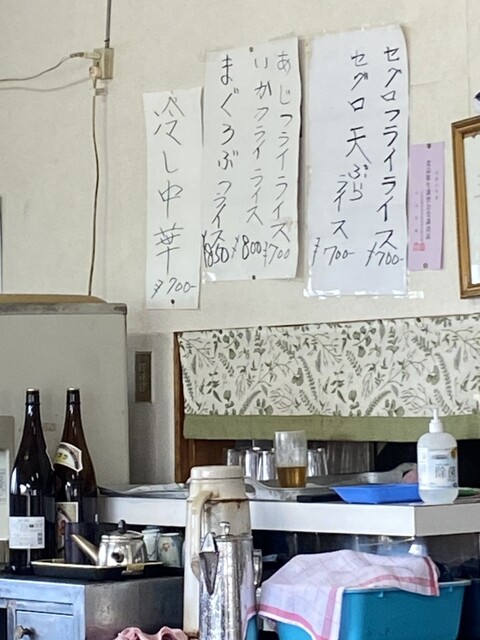 食品衛生講習会受講済証
セグロフライライス ¥700-
セグロ天ぷらライス ¥700-
あじフライライス ¥700
いかフライライス ¥800
まぐろぶつライス ¥850
冷し中華 ¥700-
除菌